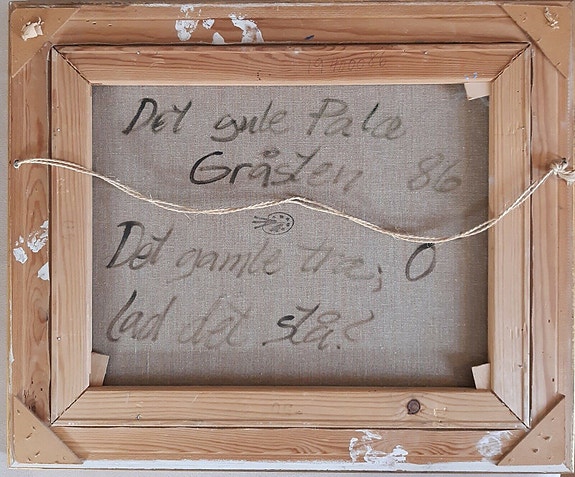 Det gule Palæ
Gråsten 86
Det gamle træ, O
lad det stå?